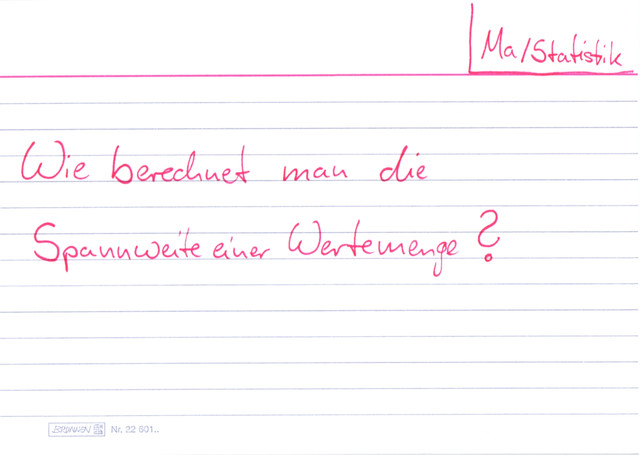 Ma/Statistik
Wie berechnet man die
Spannweite einer Wertemenge?
BRUNNEN Nr. 22 601..